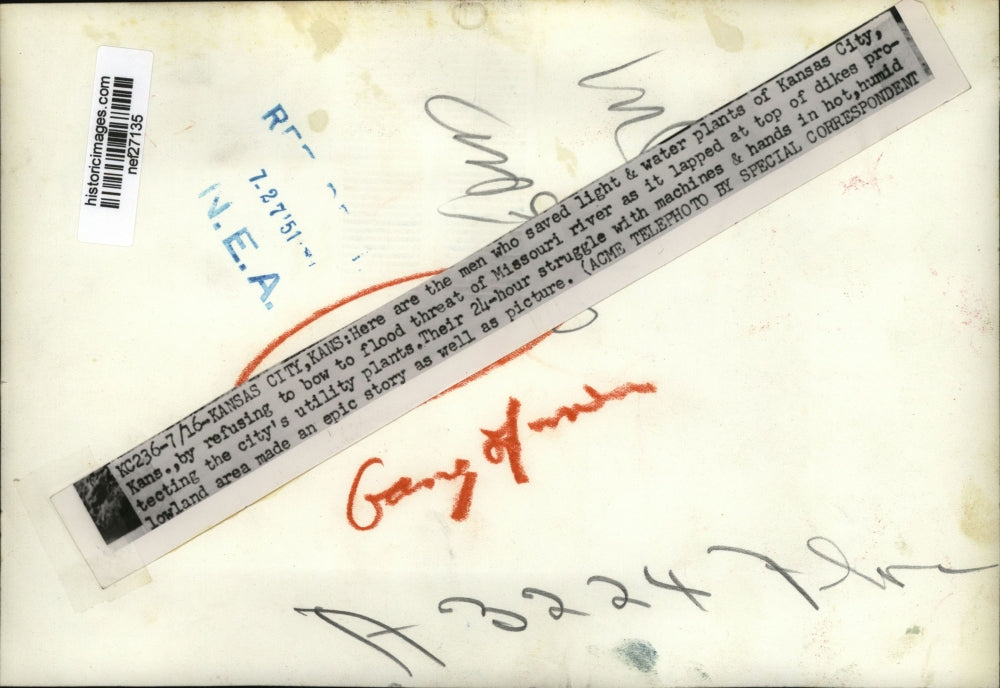 historicimages.com
nef27135
7-27'51
N.E.A.
KC236-7/16-KANSAS CITY,KANS:Here are the men who saved light & water plants of Kansas City,
Kans.,by refusing to bow to flood threat of Missouri river as it lapped at top of dikes pro-
tecting the city's utility plants.Their 24-hour struggle with machines & hands in hot,humid
lowland area made an epic story as well as picture. (ACME TELEPHOTO BY SPECIAL CORRESPONDENT
Gang of men
A 3224